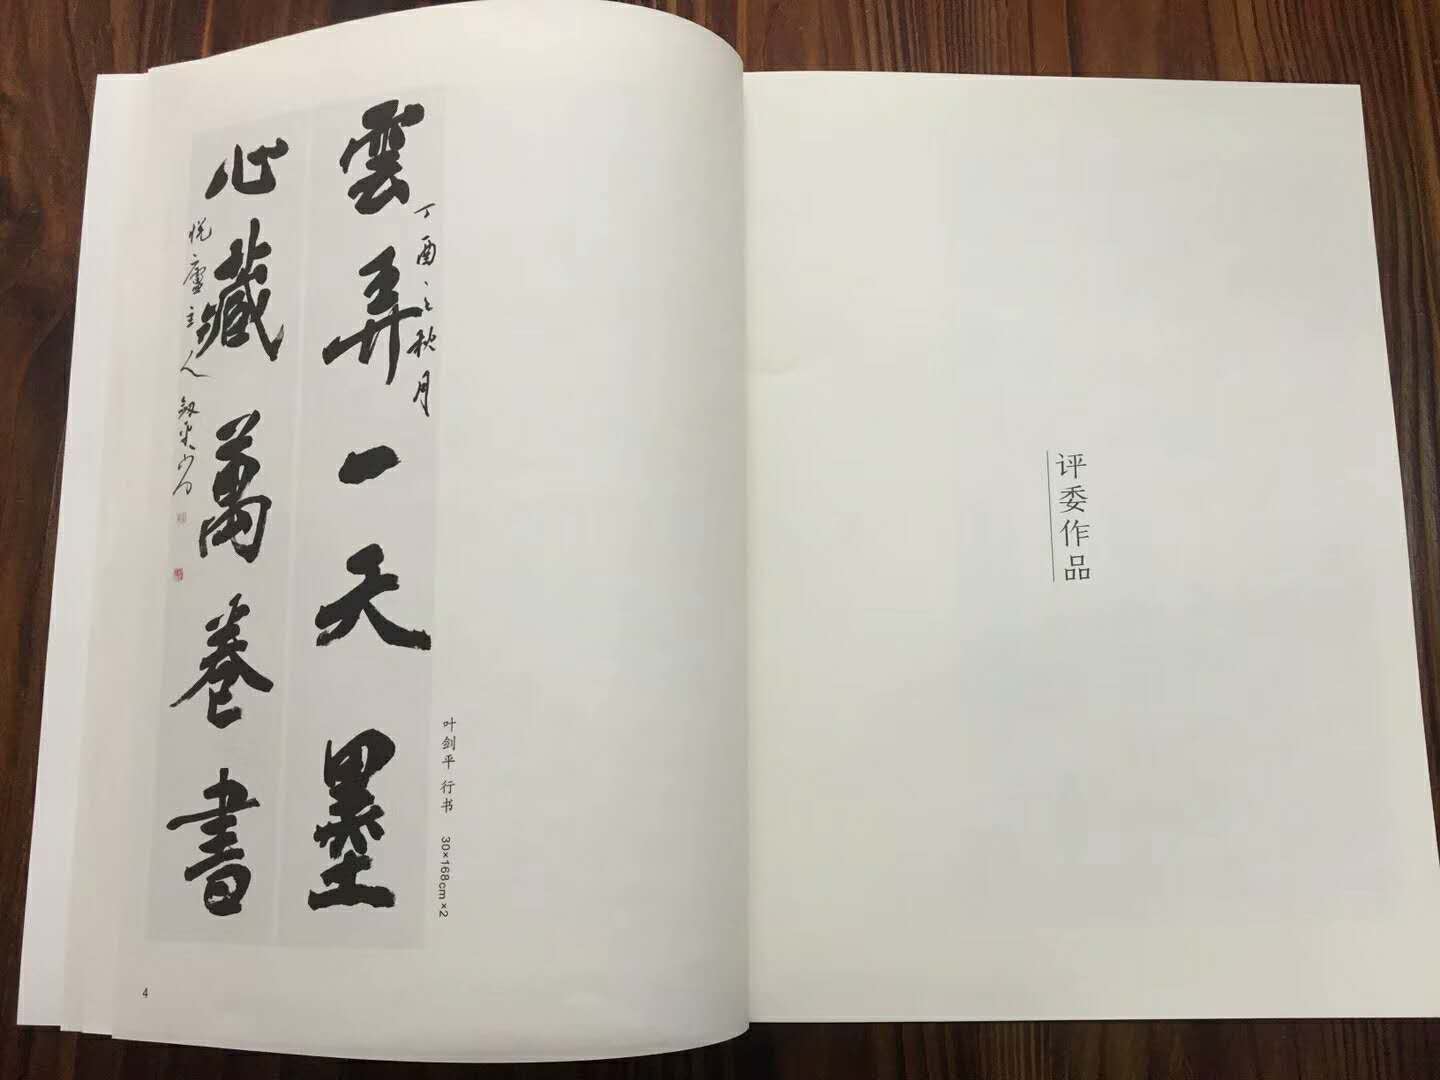 雲弄一天墨
丁酉之秋月
心藏萬卷書
悦廬主人劍平
叶剑平 行书 30×168cm×2
4
评委作品